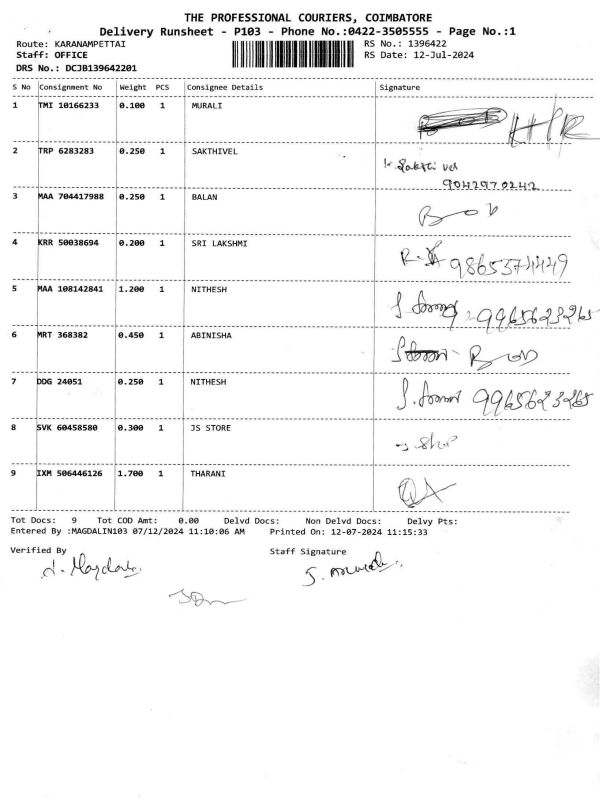 THE PROFESSIONAL COURIERS, COIMBATORE
Delivery Runsheet - P103 - Phone No.:0422-3505555 - Page No.:1
Route: KARANAMPETTAI RS No.: 1396422
Staff: OFFICE RS Date: 12-Jul-2024
DRS No.: DCJB139642201
S No Consignment No Weight PCS Consignee Details Signature
1 TMI 10166233 0.100 1 MURALI
2 TRP 6283283 0.250 1 SAKTHIVEL
Sakthi vel
9042970242
3 MAA 704417988 0.250 1 BALAN
4 KRR 50038694 0.200 1 SRI LAKSHMI
9865374449
5 MAA 108142841 1.200 1 NITHESH 9965623265
6 MRT 368382 0.450 1 ABINISHA
7 DDG 24051 0.250 1 NITHESH 9965623265
8 SVK 60458580 0.300 1 JS STORE
9 IXM 506446126 1.700 1 THARANI
Tot Docs: 9 Tot COD Amt: 0.00 Delvd Docs: Non Delvd Docs: Delvy Pts:
Entered By :MAGDALIN103 07/12/2024 11:10:06 AM Printed On: 12-07-2024 11:15:33
Verified By Staff Signature